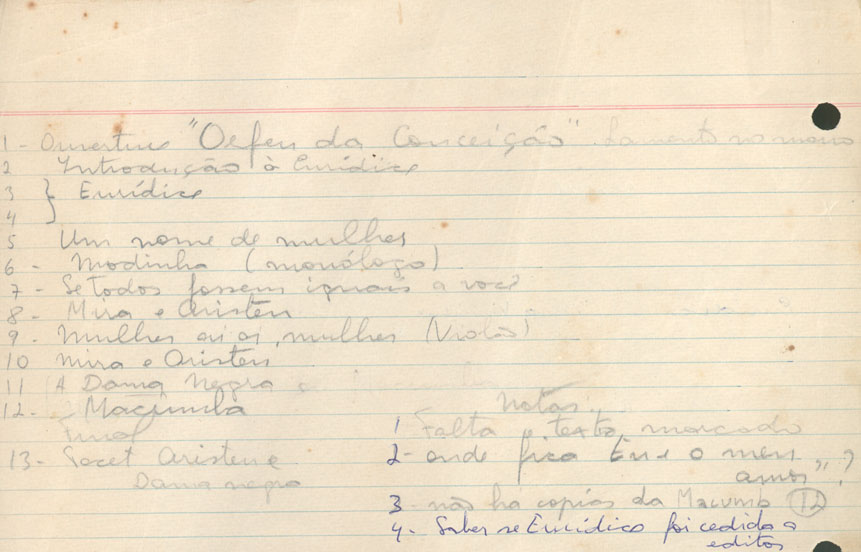 1 - Ouverture "Orfeu da Conceição" Lamento no morro
2 Introdução à Eurídice
3 } Eurídice
4
5 Um nome de mulher
6 - Modinha (monólogo)
7 - Se todos fossem iguais a você
8 - Mira e Aristeu
9 - Mulher ai ai, mulher (Violão)
10 Mira e Aristeu
11 A Dama Negra
12 - Macumba
Final
13 - Aristeu e
Dama negra
Notas
1 Falta texto marcado
2 - onde fica Eu e o meu
amor" ?
3 - não há copias da Macumba (12)
4 - Saber se Eurídice foi cedido a
editor